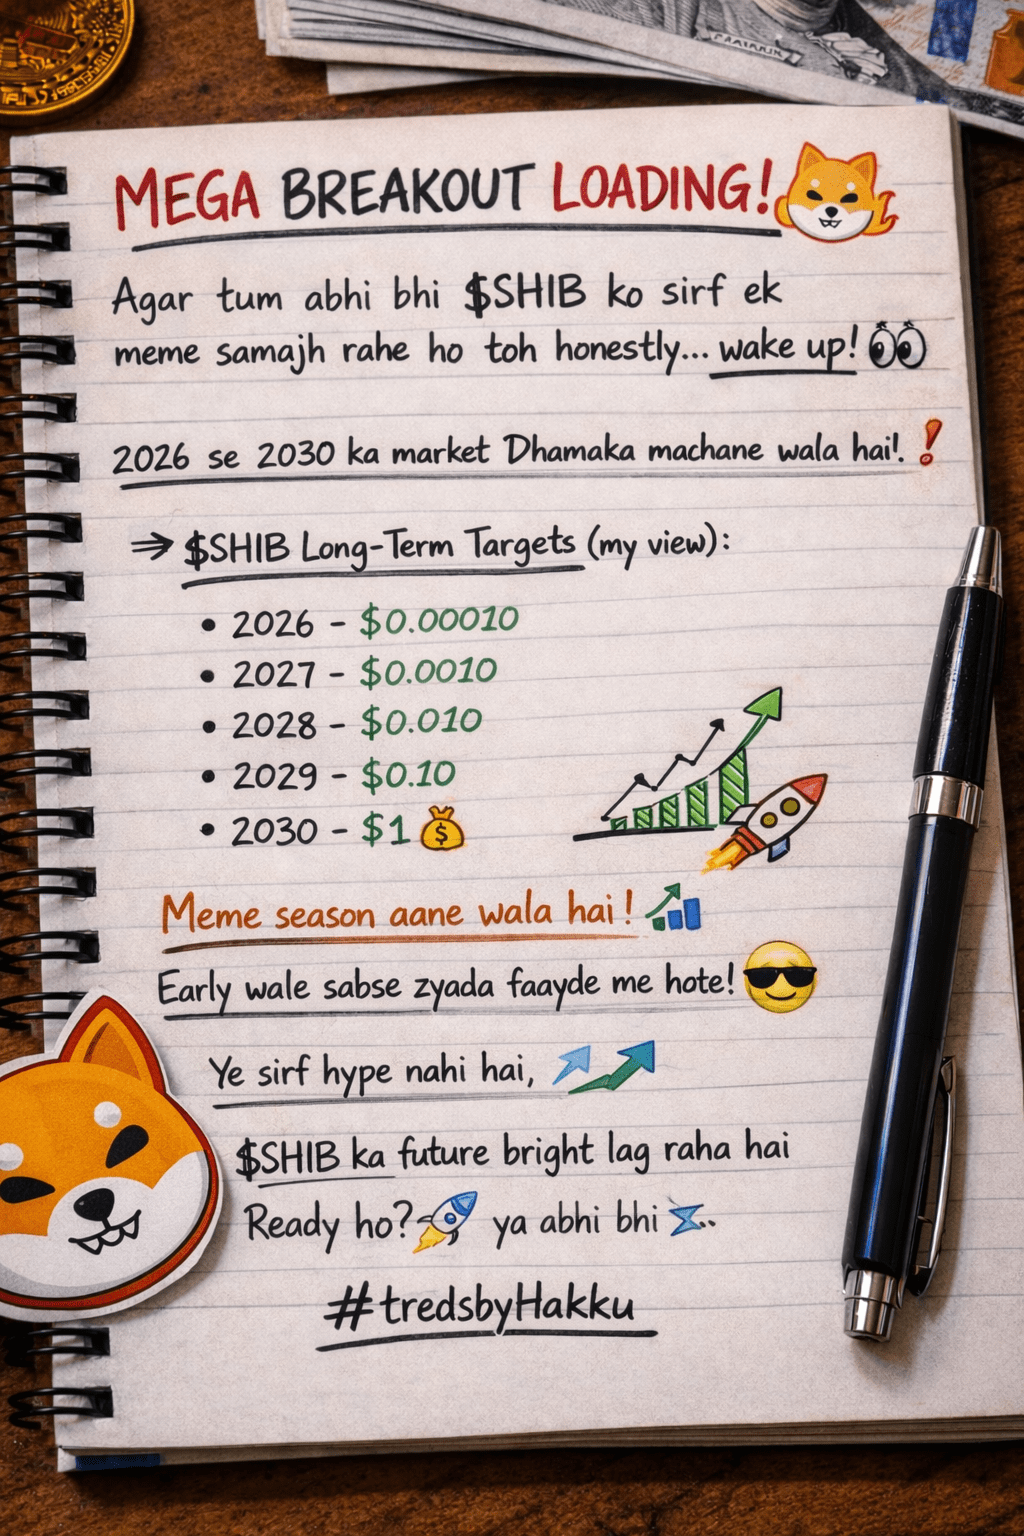 MEGA BREAKOUT LOADING!
Agar tum abhi bhi $SHIB ko sirf ek
meme samajh rahe ho toh honestly... wake up!
2026 se 2030 ka market Dhamaka machane wala hai!.
⇒ $SHIB Long-Term Targets (my view):
• 2026 - $0.00010
• 2027 - $0.0010
• 2028 - $0.010
• 2029 - $0.10
• 2030 - $1
$
Meme season aane wala hai!
Early wale sabse zyada faayde me hote!
Ye sirf hype nahi hai,
$SHIB ka future bright lag raha hai
Ready ho? ya abhi bhi ..
#tredsbyHakku